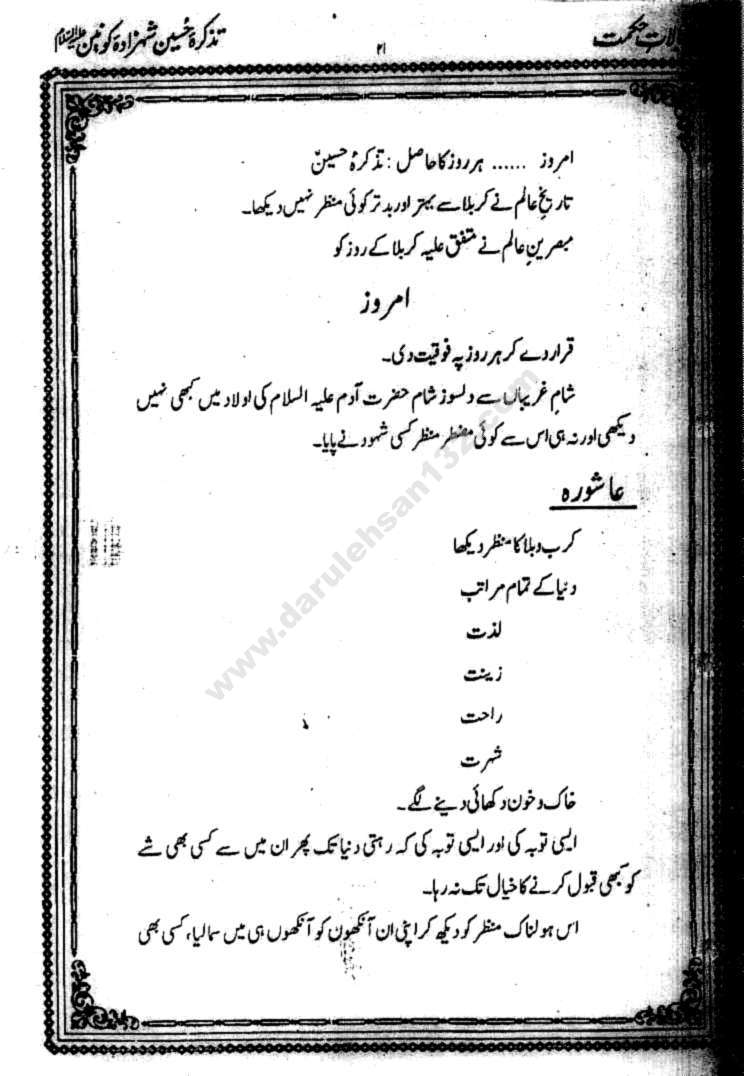 لات حکمت
۲۱
تذکرۂ حُسین شہزادہ کونین علیہ السلام
امروز ...... ہر روز کا حاصل : تذکرۂ حسینؑ
تاریخِ عالم نے کربلا سے بہتر اور بدتر کوئی منظر نہیں دیکھا۔
مبصرینِ عالم نے متفق علیہ کربلا کے روز کو
امروز
قرار دے کر ہر روز پہ فوقیت دی۔
شامِ غریباں سے دلسوز شام حضرت آدم علیہ السلام کی اولاد میں کبھی نہیں
دیکھی اور نہ ہی اس سے کوئی مضطر منظر کسی شہود نے پایا۔
عاشورہ
کرب و بلا کا منظر دیکھا
دنیا کے تمام مراتب
لذت
زینت
راحت
شہرت
خاک و خون دکھائی دینے لگے۔
ایسی توبہ کی اور ایسی توبہ کی کہ رہتی دنیا تک پھر ان میں سے کسی بھی شے
کو کبھی قبول کرنے کا خیال تک نہ رہا۔
اس ہولناک منظر کو دیکھ کر اپنی ان آنکھوں کو آنکھوں ہی میں سما لیا، کسی بھی
www.darulehsan132.com